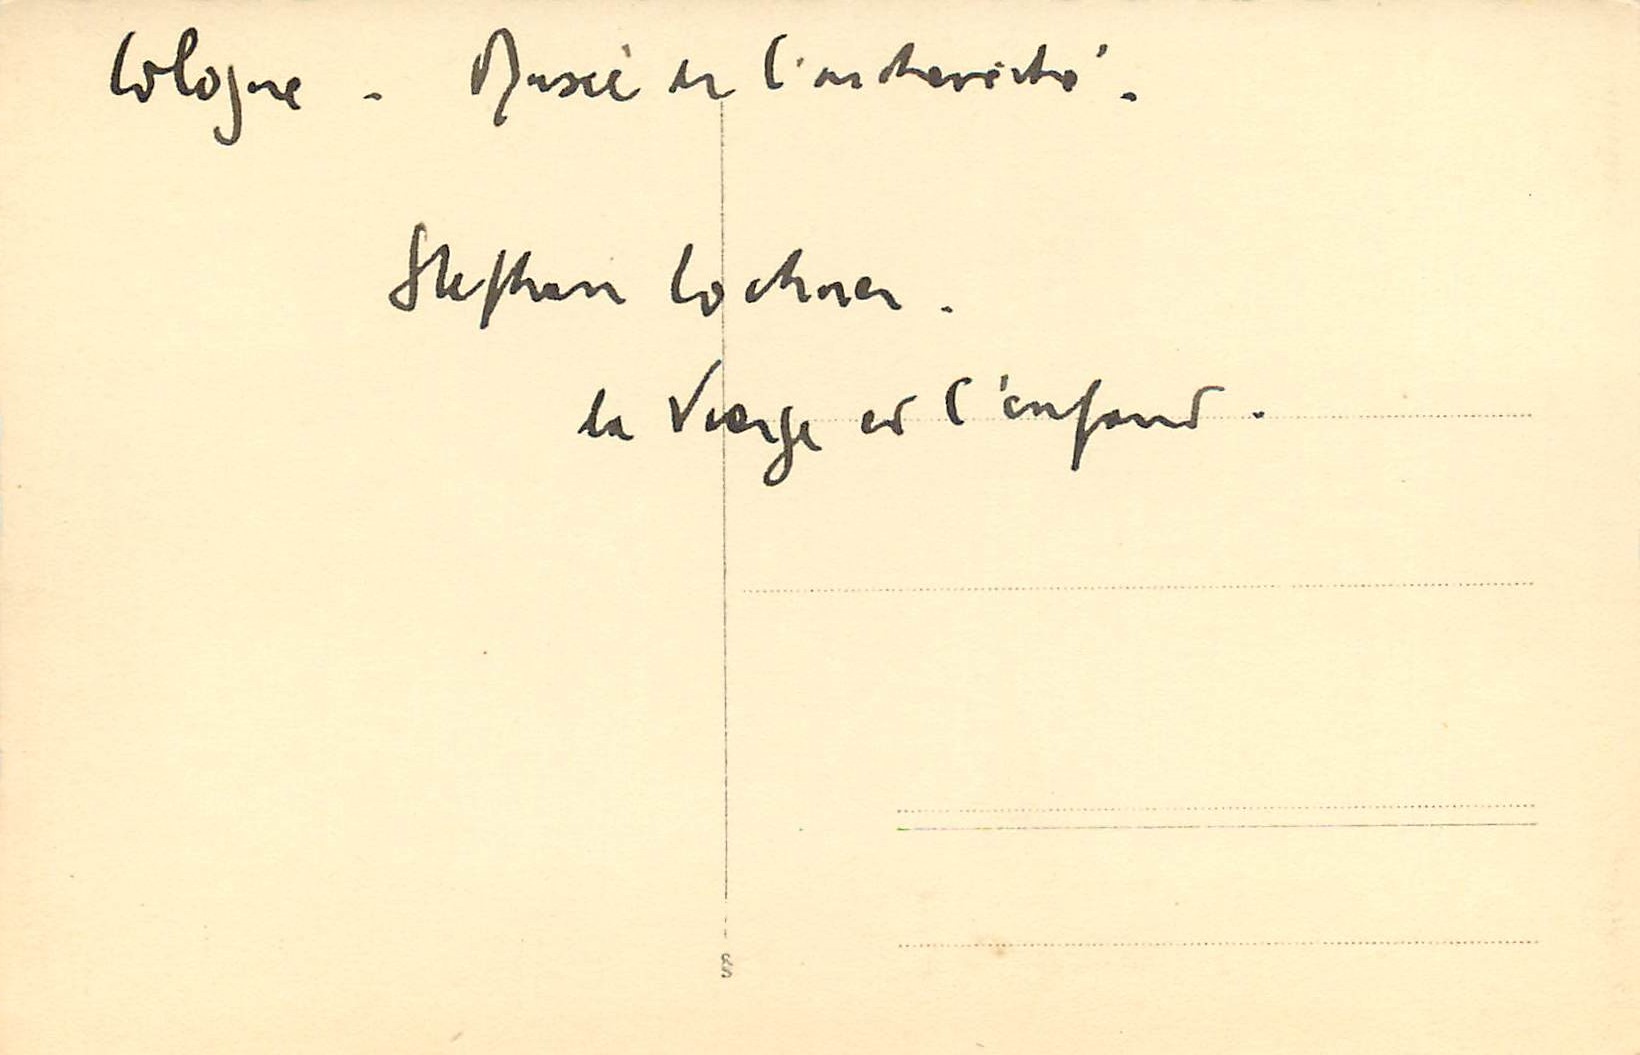 Cologne - Musée de l'archevêché.
Stephan Lochner.
la Vierge et l'enfant.